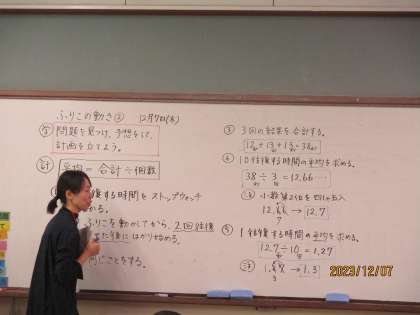 ふりこの動き② 12月7日(木)
問題を見つけ、予想をして、
計画を立てよう。
計 平均 = 合計 ÷ 個数
復する時間をストップウォッチ
める。
ふりこを動かしてから、2回往復
た後にはかり始める。
同じことをする。
③ 3回の結果を合計する。
④ 10往復する時間の平均を求める。
38 ÷ 3 = 12.66…
小数第2位を四捨五入
→ 12.7
⑤ 1往復する時間の平均を求める。
12.7 ÷ 10 = 1.27
→ 1.3
2023/12/07